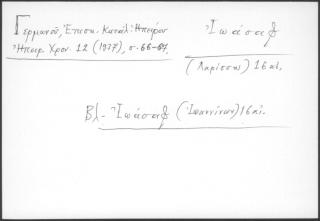 Γερμανοῦ, Ἐπισκ. Κατάλ. Ἠπείρου
Ἠπειρ. Χρον. 12 (1937), σ. 66-67.
Ἰωάσαφ
(Λαρίσσης) 16 αἰ.
Βλ. Ἰωάσαφ (Ἰωαννίνων) 16 αἰ.